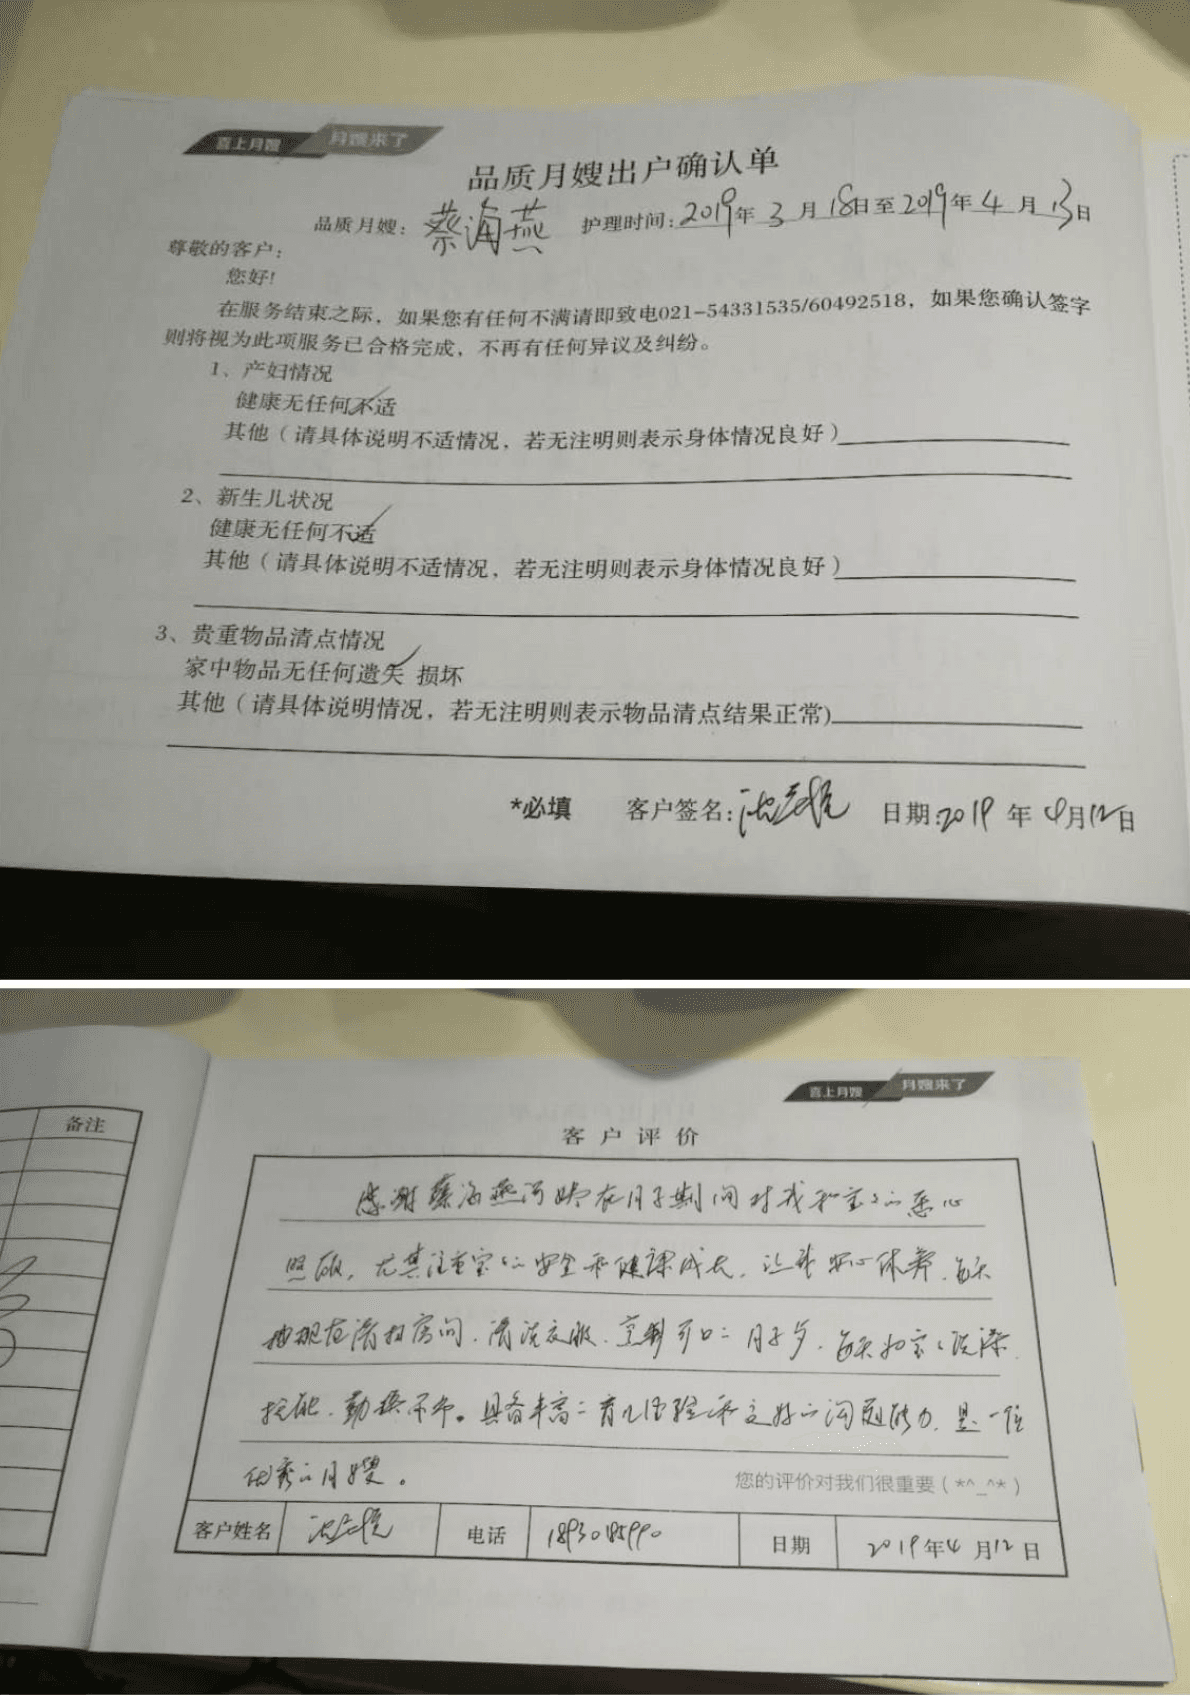 喜上月嫂 月嫂来了
品质月嫂出户确认单
品质月嫂：蔡海燕 护理时间：2019年3月18日至2019年4月13日
尊敬的客户：
您好！
在服务结束之际，如果您有任何不满请即致电021-54331535/60492518，如果您确认签字
则将视为此项服务已合格完成，不再有任何异议及纠纷。
1、产妇情况
健康无任何不适
其他（请具体说明不适情况，若无注明则表示身体情况良好）
2、新生儿状况
健康无任何不适
其他（请具体说明不适情况，若无注明则表示身体情况良好）
3、贵重物品清点情况
家中物品无任何遗失 损坏
其他（请具体说明情况，若无注明则表示物品清点结果正常)
*必填 客户签名： 日期：2019年4月12日
喜上月嫂 月嫂来了
备注
客户评价
感谢蔡海燕阿姨在月子期间对我和宝宝的悉心
照顾，尤其注重宝宝的安全和健康成长，让我安心休养，每天
打扫房间、清洗衣服、烹制可口的月子，每天为宝宝洗澡
抚触、勤换尿布。具备丰富的育儿经验和良好的沟通能力，是一位
优秀的月嫂。
您的评价对我们很重要（*^_^*）
客户姓名 电话 日期 2019年4月12日